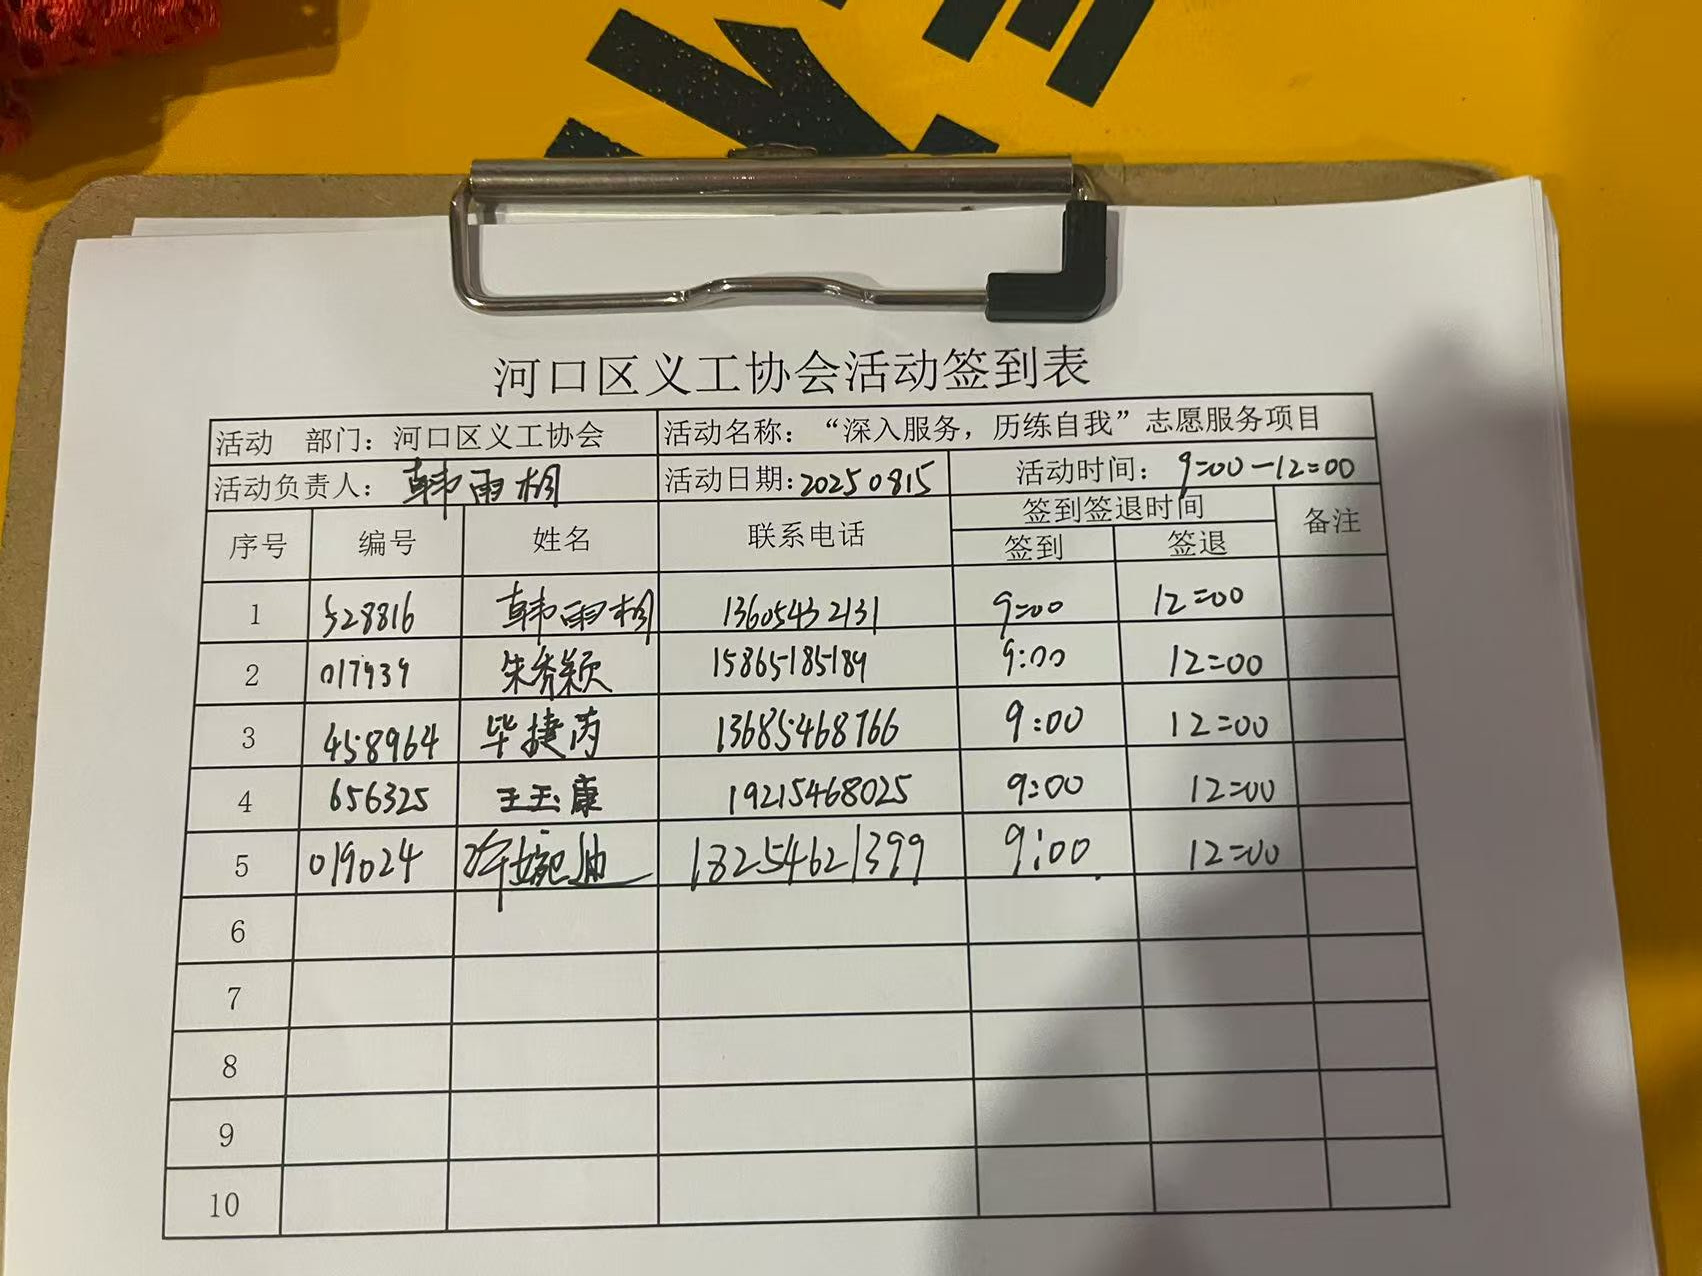 河口区义工协会活动签到表
活动 部门：河口区义工协会 活动名称：“深入服务，历练自我”志愿服务项目
活动负责人：韩雨桐 活动日期：20250815 活动时间：9:00-12:00
序号 编号 姓名 联系电话 签到签退时间 备注
签到 签退
1 528816 韩雨桐 13605432131 9:00 12:00
2 017939 朱秀颖 15865185189 9:00 12:00
3 458964 毕捷芮 13685468766 9:00 12:00
4 656325 王玉康 19215468025 9:00 12:00
5 019024 许婉迪 18254621399 9:00 12:00
6
7
8
9
10